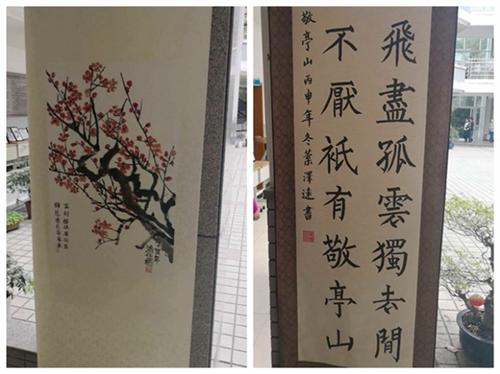 飛盡孤雲獨去閒
不厭衹有敬亭山
敬亭山丙申年冬葉澤遠書